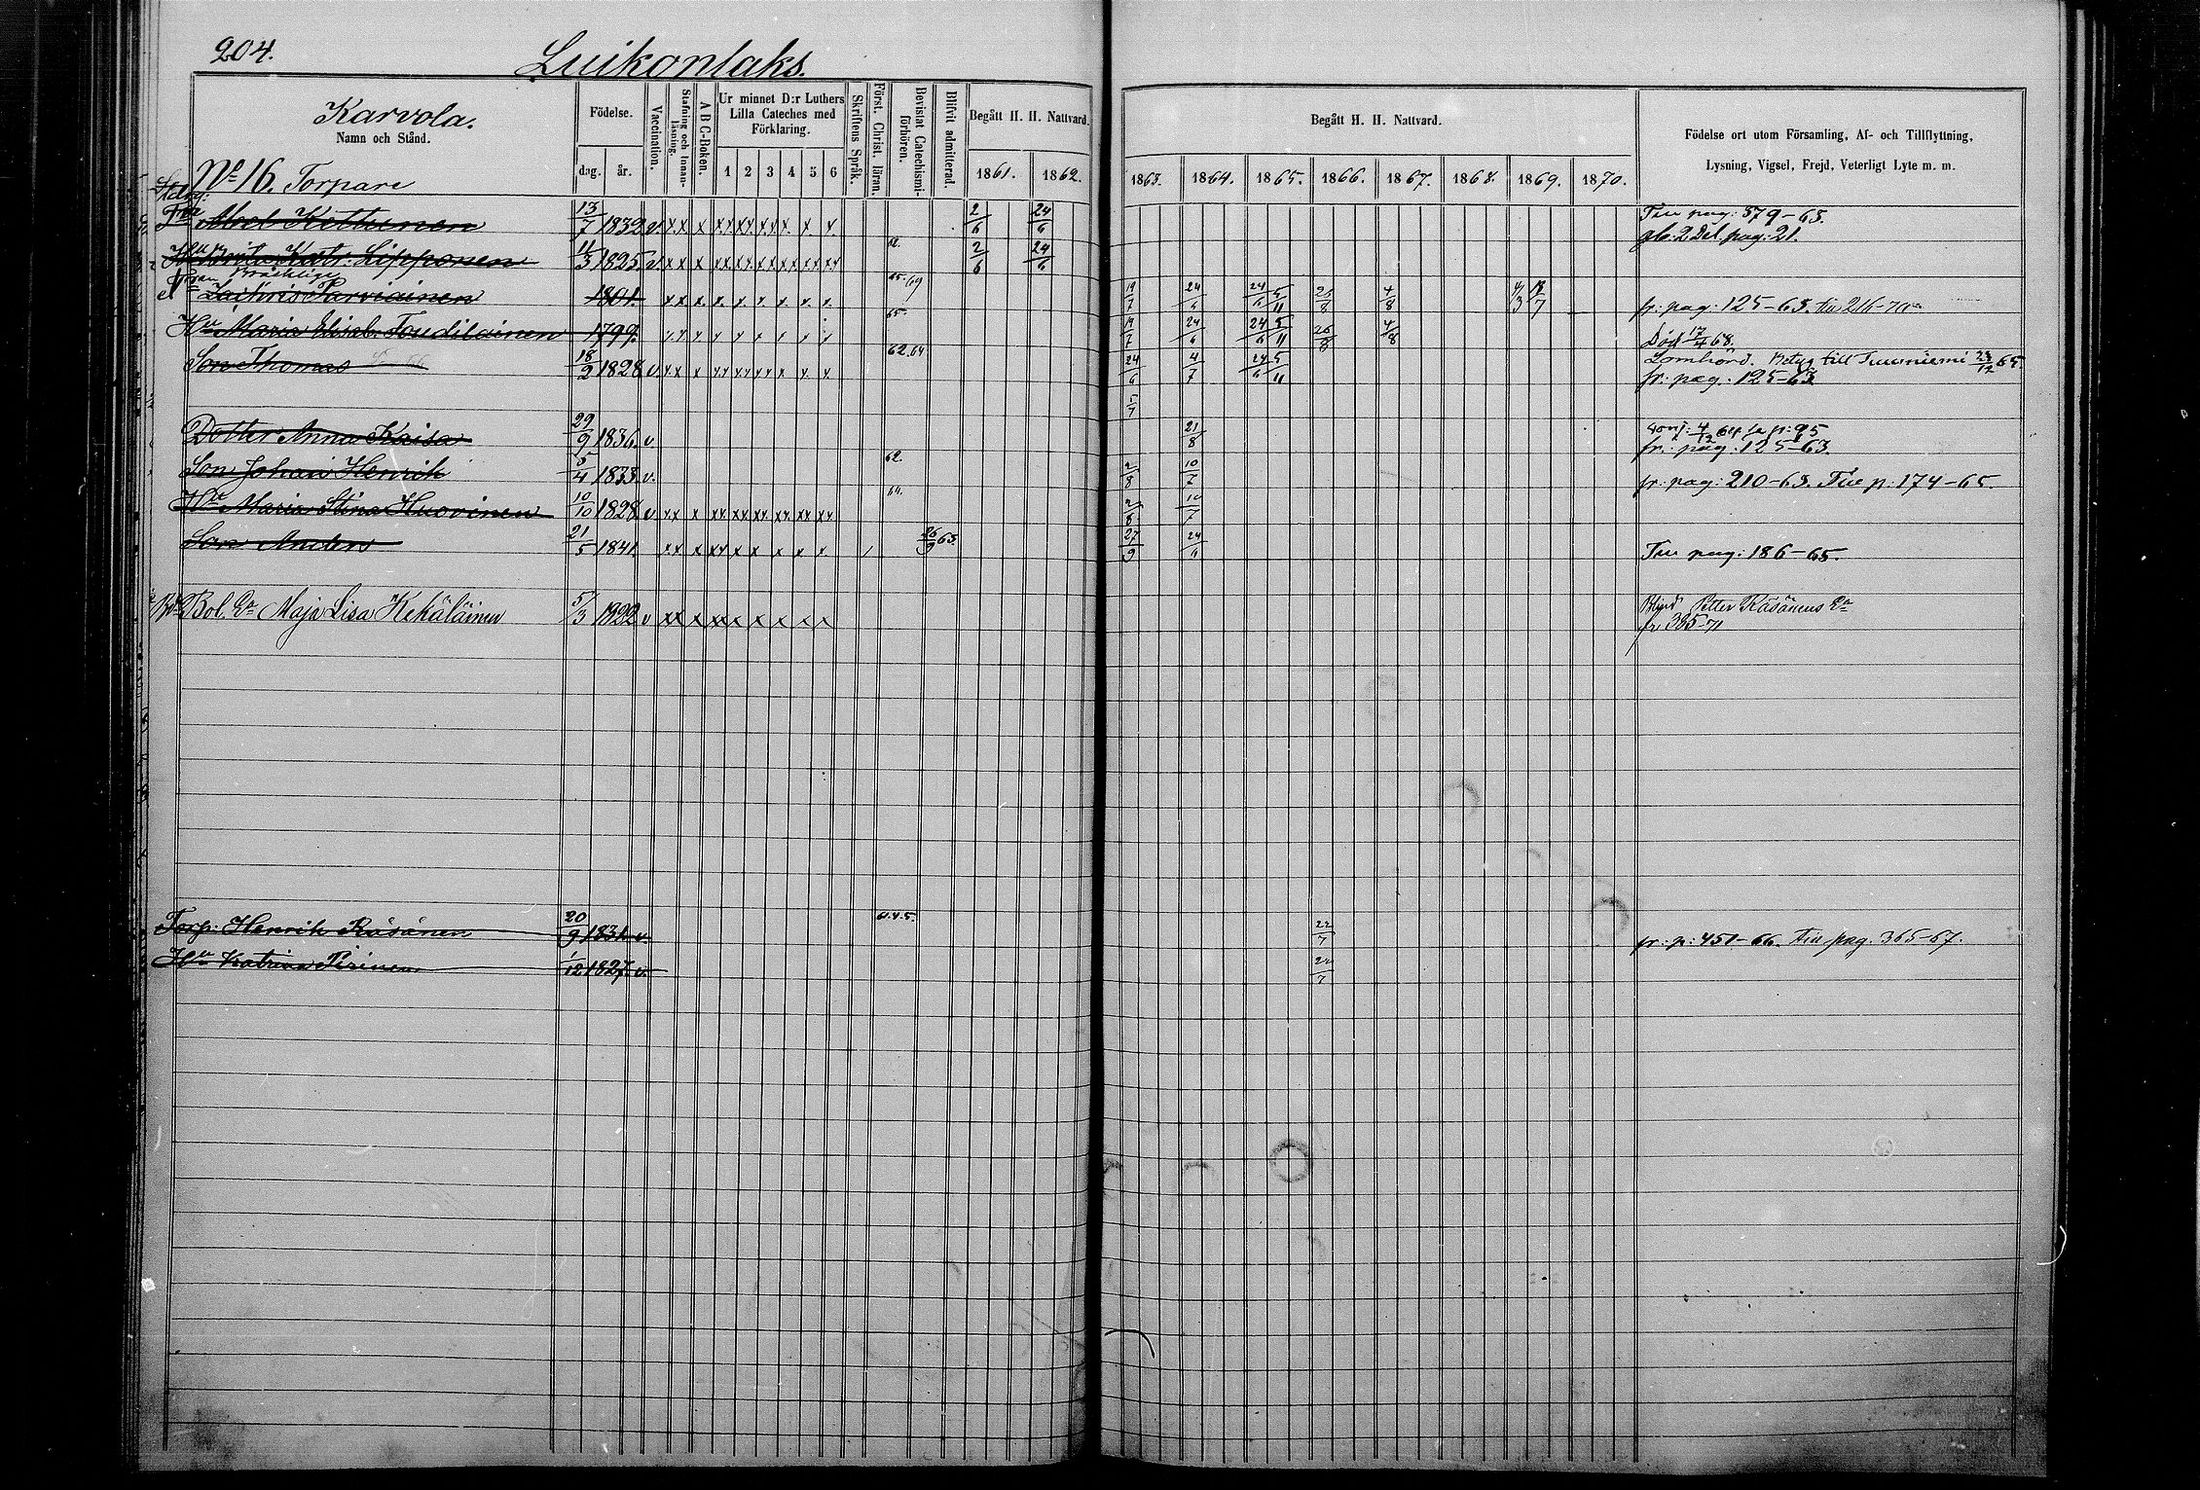 204.
Luikonlaks.
Karvola.
Namn och Stånd.
Födelse.
dag.
år.
Vaccination.
Stafning och Innan-läsning.
A B C-Boken.
Ur minnet D:r Luthers
Lilla Cateches med
Förklaring.
1 2 3 4 5 6
Skriftens Språk.
Först. Christ. läran.
Bevistat Catechismi-förhören.
Blifvit admitterad.
Begått H. H. Nattvard.
1861. 1862.
Begått H. H. Nattvard.
1863. 1864. 1865. 1866. 1867. 1868. 1869. 1870.
Födelse ort utom Församling, Af- och Tillflyttning,
Lysning, Vigsel, Frejd, Veterligt Lyte m. m.
No 16. Torpare
Abel Kettunen 13/7 1832 v 2/6 24/6 pag: 379-63.
2 Del. pag: 21.
Hu Brita Katr. Lipponen 11/3 1825 v 2/6 24/6
Bräcklige
Zachris Parviainen 1801 19/7 24/6 24/6 5/11 4/8 fr: pag: 125-63.
Hu Maria Elisab. Toudilainen 1799 65. 19/7 24/6 24/6 5/11 26/8 4/8 Död 17/4 68.
Son Thomas 18/2 1828 v 62. 64 24/6 4/7 24/6 5/11 Lomhörd. Betyg till Tuusniemi 23/12 65.
fr: pag: 125-63
5/7
Dotter Anna Kaisa 29/9 1836 v 21/8 p: 95
fr: pag: 125-63.
Son Johan Henrik 5/4 1833 v. 62. 2/8 10/7 fr: pag: 210-63. p: 174-65.
Hu Maria Stina Huovinen 10/10 1828 v 64. 2/8 10/7
Son Anders 21/5 1841 26/9 63. 27/9 24/6 pag: 186-65.
Maja Lisa Kekäläinen 5/3 1822 v Petter Räsänens Ea
fr 385-71
Torp: Henrik Räsänen 20/9 1831 v. 61.4.5. 22/7 fr: p: 451-66. pag. 365-67.
Hu Katrina Pirinen 1/12 1827. v. 22/7